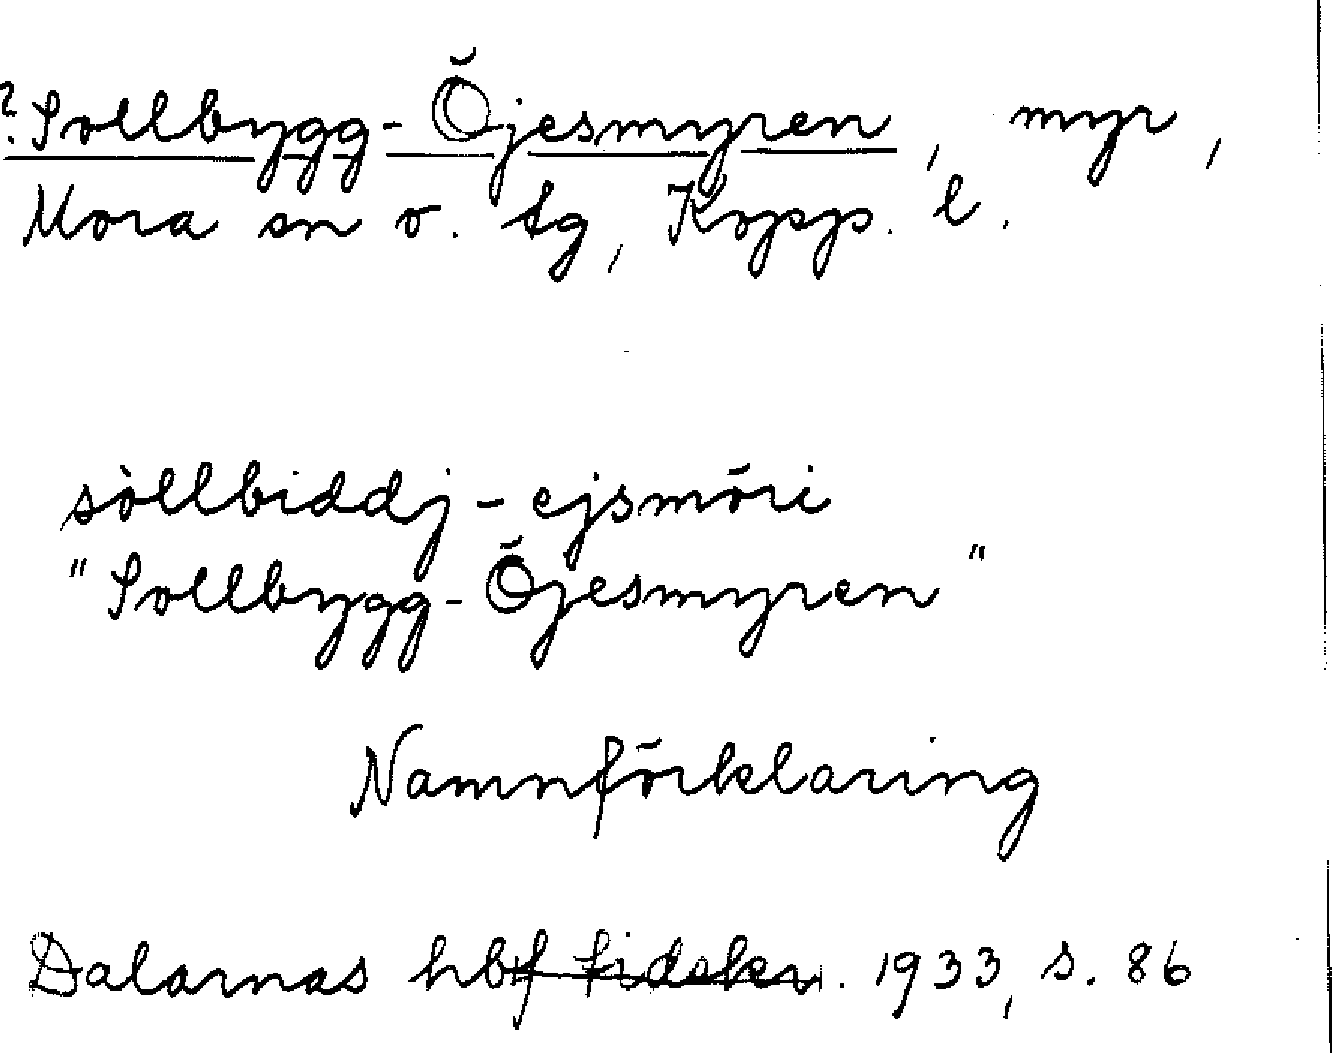 ? Sollbygg-Öjesmyren, myr,
Mora sn o. tg, Kopp. l.
sòllbiddj-ejsmöri
"Sollbygg-Öjesmyren"
Namnförklaring
Dalarnas hbf tidskr. 1933, s. 86